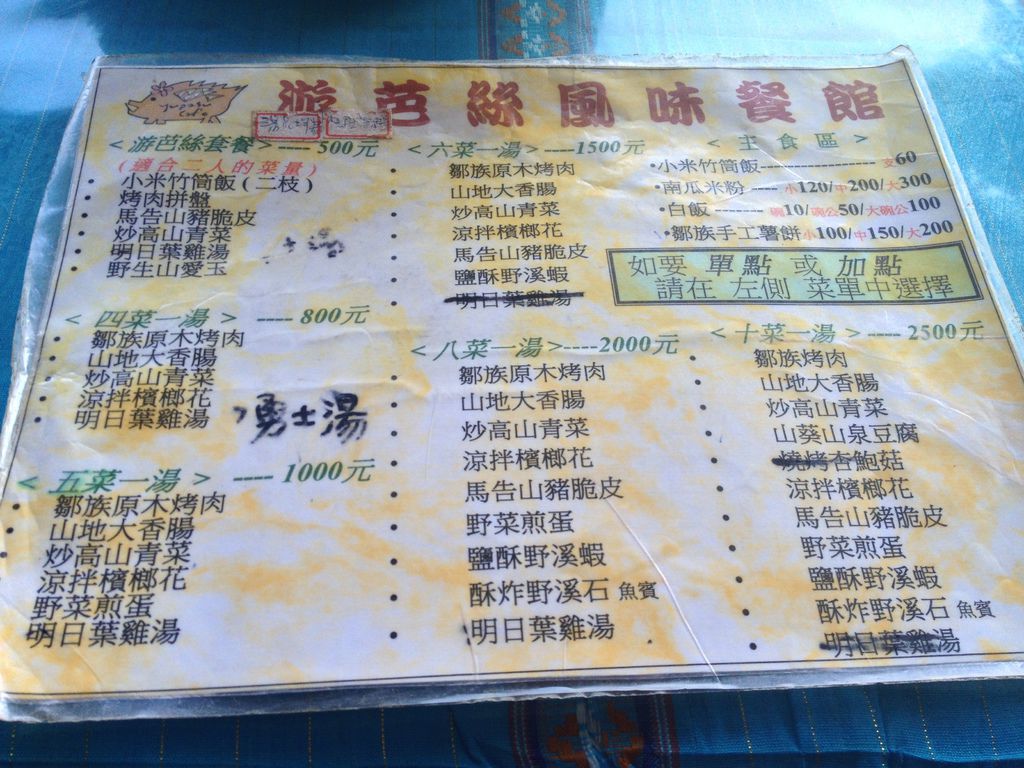 游芭絲風味餐館
<游芭絲套餐>----500元
(適合二人的菜量)
• 小米竹筒飯(二枝)
• 烤肉拼盤
• 馬告山豬脆皮
• 炒高山青菜
• 明日葉雞湯
• 野生山愛玉
<四菜一湯> ----800元
• 鄒族原木烤肉
• 山地大香腸
• 炒高山青菜
• 涼拌檳榔花
• 明日葉雞湯
勇士湯
<五菜一湯> ----1000元
• 鄒族原木烤肉
• 山地大香腸
• 炒高山青菜
• 涼拌檳榔花
• 野菜煎蛋
• 明日葉雞湯
<六菜一湯>----1500元
• 鄒族原木烤肉
• 山地大香腸
• 炒高山青菜
• 涼拌檳榔花
• 馬告山豬脆皮
• 鹽酥野溪蝦
• 明日葉雞湯
<八菜一湯>----2000元
• 鄒族原木烤肉
• 山地大香腸
• 炒高山青菜
• 涼拌檳榔花
• 馬告山豬脆皮
• 野菜煎蛋
• 鹽酥野溪蝦
• 酥炸野溪石魚賓
• 明日葉雞湯
<主食區>
•小米竹筒飯------------------支60
•南瓜米粉----小120/中200/大300
•白飯--------碗10/碗公50/大碗公100
•鄒族手工薯餅小100/中150/大200
如要 單點 或 加點
請在 左側 菜單中選擇
<十菜一湯>----2500元
• 鄒族烤肉
• 山地大香腸
• 炒高山青菜
• 山葵山泉豆腐
• 燒烤杏鮑菇
• 涼拌檳榔花
• 馬告山豬脆皮
• 野菜煎蛋
• 鹽酥野溪蝦
• 酥炸野溪石魚賓
• 明日葉雞湯